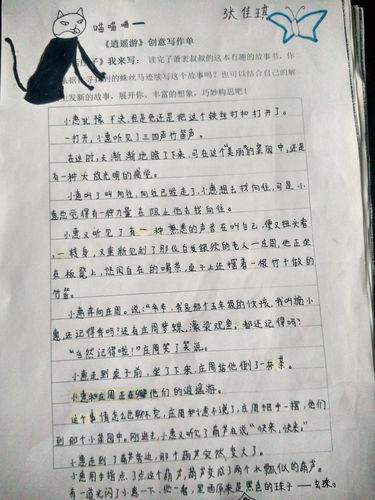 喵喵喵一
张佳琪
《逍遥游》创意写作单
子》我来写：读完了萧袤叔叔的这本有趣的故事书，你
依据寻找到的蛛丝马迹续写这个故事吗？也可以结合自己的解
发新的故事，展开你、丰富的想象，巧妙构思吧！
小惠犹豫不决，但是他还是把这个铁丝打和打开了。
一打开，小惠听见了三四声竹笛声。
在这时，天渐渐地暗了下来，可在这个“美丽”的菜园中，还是
有一种大放光明的感觉。
小惠叫了叫向往，向往已经走了，小惠想去找向往，可是，小
惠总觉得有一种力量在阻止他去找向往。
小惠又听见了有一种熟悉的声音在叫自己，便又扭头看
，一转身，又重新见到了那位白发银须的老人一庄周，他正坐
在板凳上，悠闲自在的喝茶，桌子上还摆着一根竹子做的
竹笛。
小惠奔向庄周。说：“爷爷，我是那个五年级的女孩，我叫梅小
惠还记得我吗？还有庄周梦蝶，濠梁观鱼，都还记得吗？
“当然记得啦！”庄周笑了笑说。
小惠走到桌子前，坐了下来，庄周给他倒了一杯茶。
小惠和庄周正在聊他们的逍遥游。
这个事情怎么也聊不完，庄周和小惠不说了，庄周把手一摆，他们
到那个小菜园中。刚进去，小惠又听见了葫芦在说“快来，快来。”
小惠走到了葫芦旁边，那个葫芦突然变大了。
小惠用手指点了点这个葫芦，葫芦变成了两个水瓢似的葫芦。
有一道光闪了小惠一下，他一看，里面原来是黑色的珠子——玄珠。